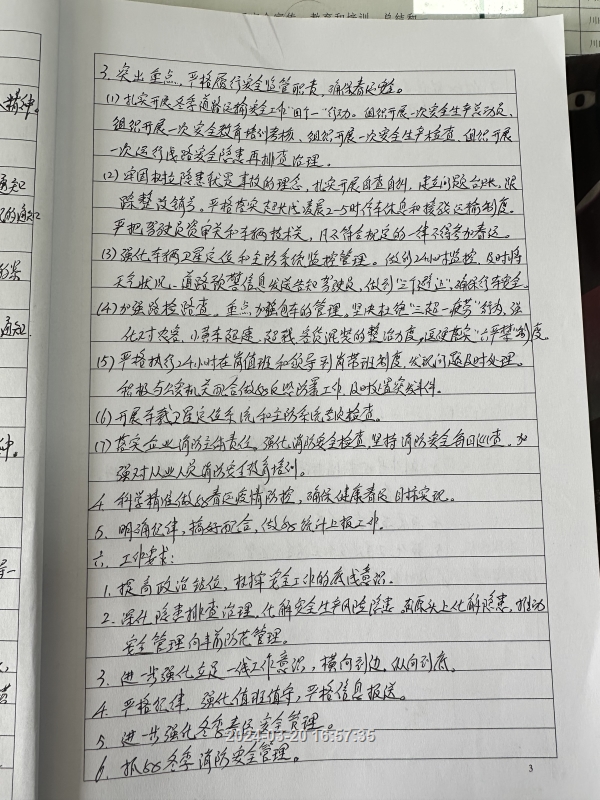 3. 突出重点，严格履行安全监管职责，确保春运安全。
(1) 扎实开展冬季道路运输安全工作"四个一"行动。组织开展一次安全生产总动员、
组织开展一次安全教育培训考核、组织开展一次安全生产检查、组织开展
一次运行线路安全隐患再排查治理。
(2) 牢固树立隐患就是事故的理念，扎实开展自查自纠，建立问题台账，限
期整改销号。严格落实长途客运凌晨2-5时停车休息和接驳运输制度。
严把驾驶员资审关和车辆技术关，凡不符合规定的一律不得参加春运。
(3) 强化车辆卫星定位和主防系统监控管理。做到24小时监控，及时将
天气状况、道路预警信息发送告知驾驶员，做到"三个避让"，确保行车安全。
(4) 加强路检路查，重点加强包车的管理。坚决杜绝"三超一疲劳"行为，强
化对农客、小黄车超速、超载、客货混装的整治力度，逗硬落实"六严禁"制度。
(5) 严格执行24小时在岗值班和领导到岗带班制度，发现问题及时处理。
积极与公安机关配合做好反恐防暴工作，及时处置突发事件。
(6) 开展车载卫星定位系统和主防系统专项检查。
(7) 落实企业消防主体责任。强化消防安全检查，坚持消防安全每日巡查，加
强对从业人员消防安全教育培训。
4. 科学精准做好春运疫情防控，确保健康春运目标实现。
5. 明确纪律，搞好配合，做好统计上报工作。
六、工作要求：
1. 提高政治站位，树牢安全工作的底线意识。
2. 深化隐患排查治理，化解安全生产风险隐患，从源头上化解隐患，推动
安全管理向事前防范管理。
3. 进一步强化立足一线工作意识，横向到边，纵向到底。
4. 严格纪律，强化值班值守，严格信息报送。
5. 进一步强化冬季春运安全管理。
2024-03-20 16:57:35
6. 抓好冬季消防安全管理。
3